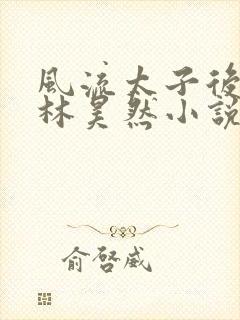 風流太子後
林昊然小說
俞啓威